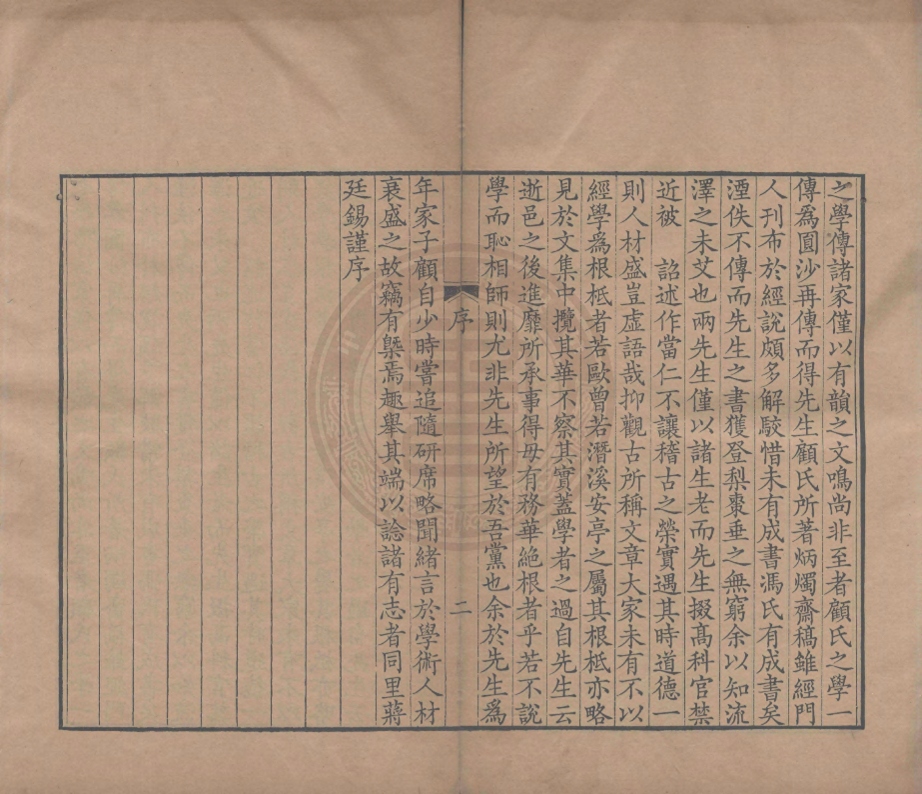 之學傳諸家僅以有韻之文鳴尚非至者顧氏之學一
傳爲圓沙再傳而得先生顧氏所著炳燭齋稿雖經門
人刊布於經說頗多解駮惜未有成書馮氏有成書矣
湮佚不傳而先生之書獲登梨棗垂之無窮余以知流
澤之未艾也兩先生僅以諸生老而先生掇高科官禁
近被 詔述作當仁不讓稽古之榮實遇其時道德一
則人材盛豈虛語哉抑觀古所稱文章大家未有不以
經學爲根柢者若歐曾若潛溪安亭之屬其根柢亦略
見於文集中攬其華不察其實蓋學者之過自先生云
逝邑之後進靡所承事得毋有務華絶根者乎若不說
學而恥相師則尤非先生所望於吾黨也余於先生爲
序 二
年家子顧自少時嘗追隨研席略聞緒言於學術人材
衰盛之故竊有槩焉趣舉其端以諗諸有志者同里蔣
廷錫謹序